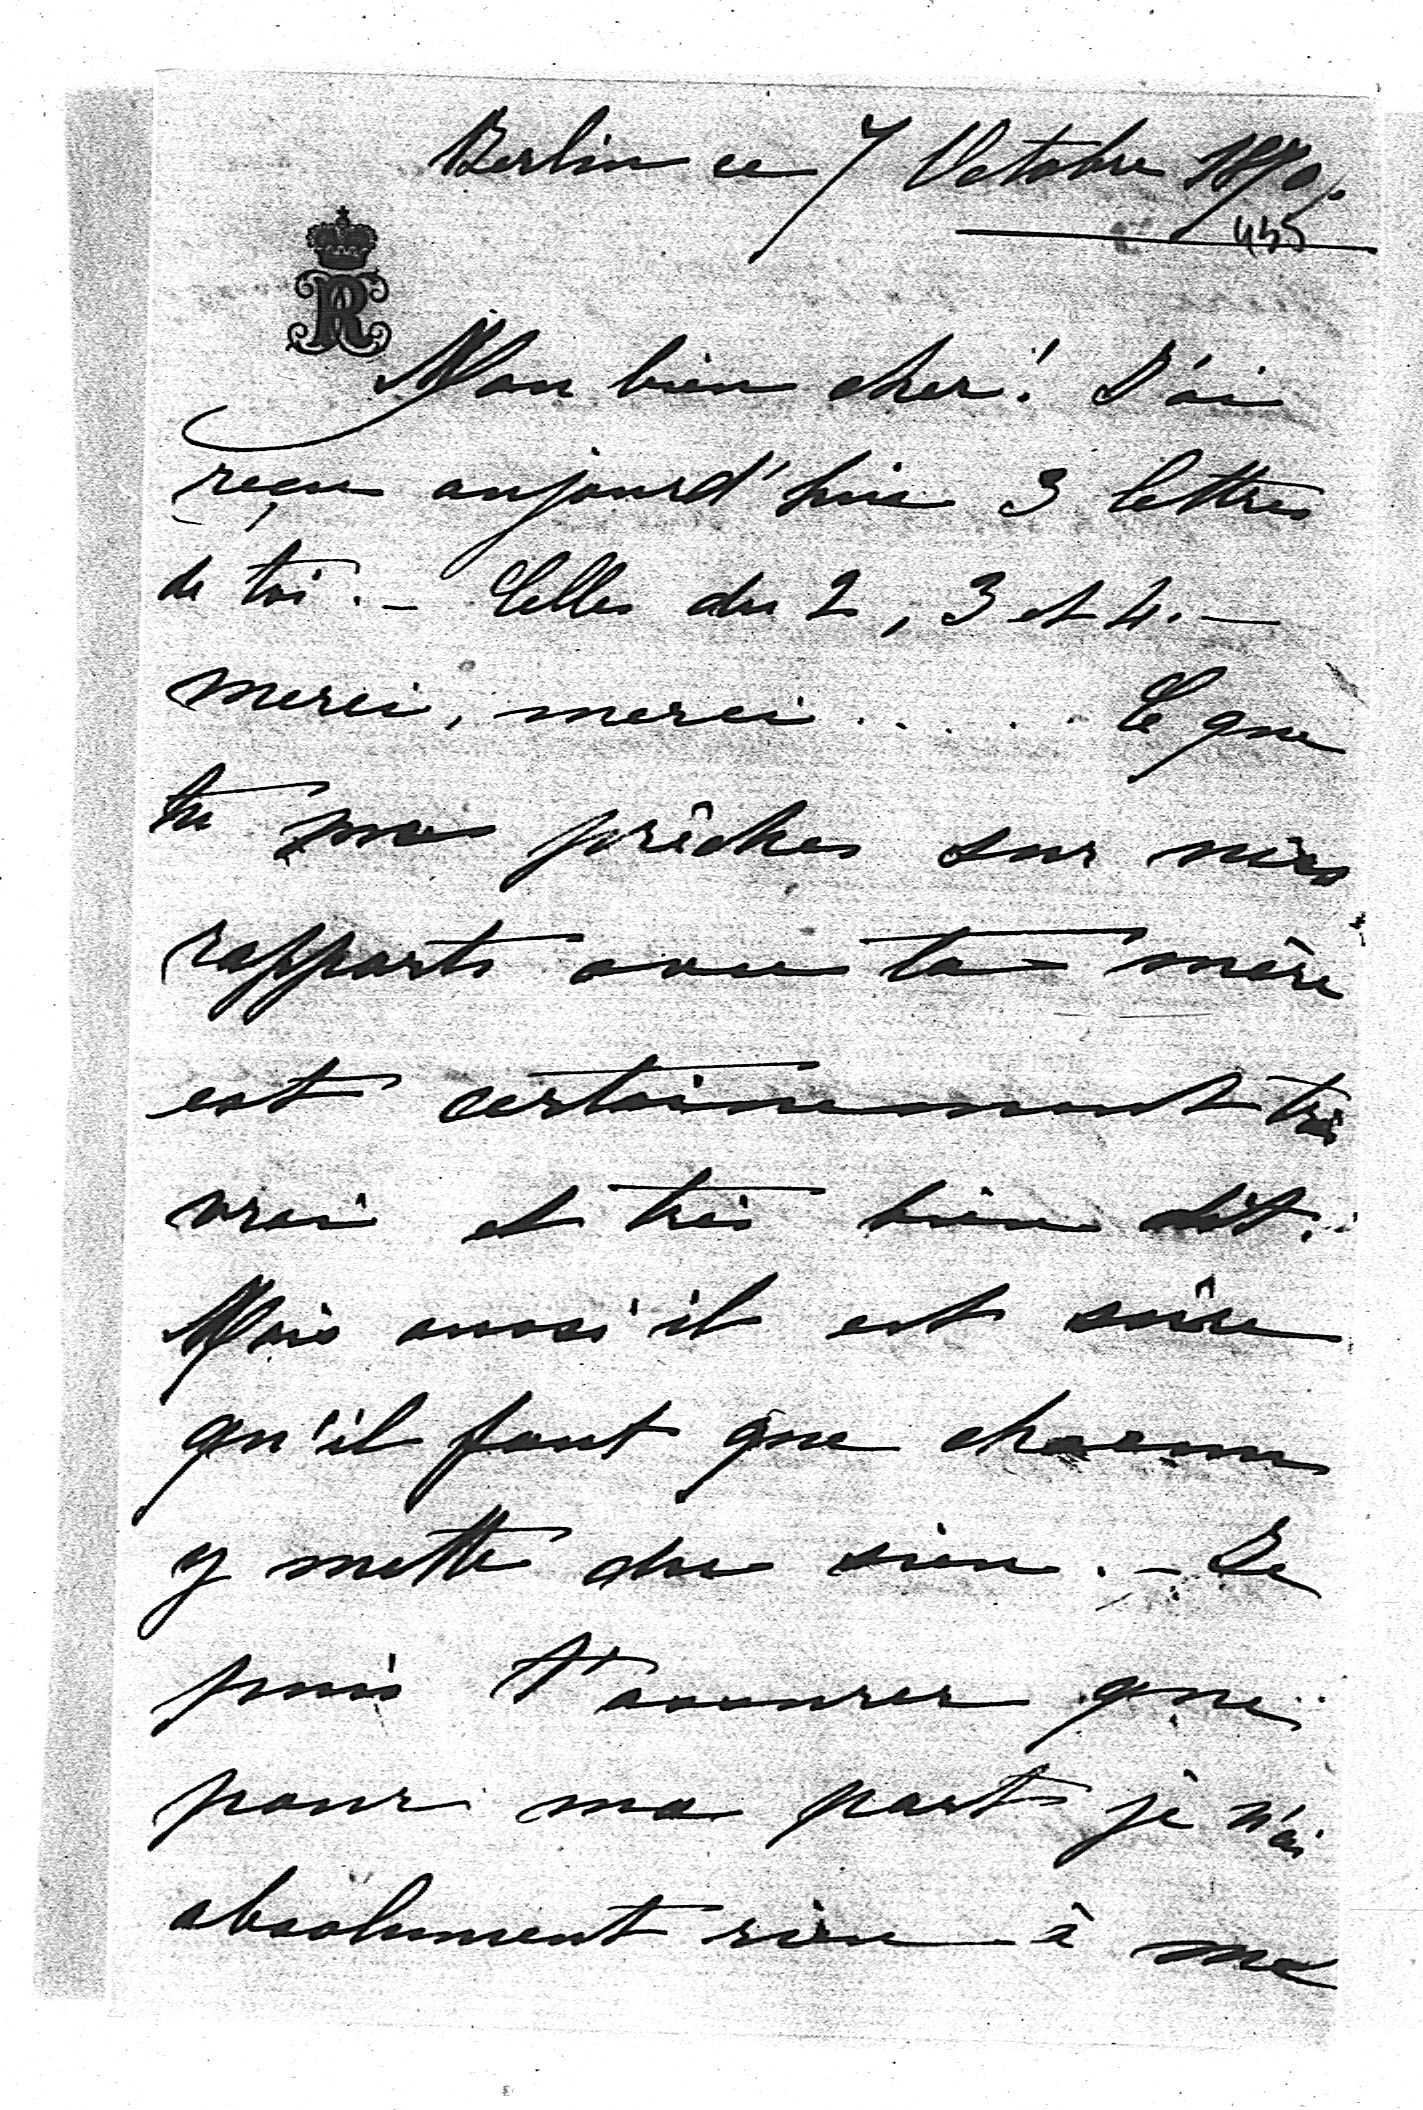 Berlin ce 7 Octobre 1870.
455
Mon bien cher! J'ai
reçu aujourd'hui 3 lettres
de toi. – Celles du 2, 3 et 4. –
merci, merci ..... Ce que
tu me prêches sur mes
rapports avec ta mère
est certainement très
vrai et très bien dit.
Mais aussi il est sûre
qu'il faut que chacun
y mette du sien. – Je
puis t'assurer que
pour ma part je n'ai
absolument rien à me